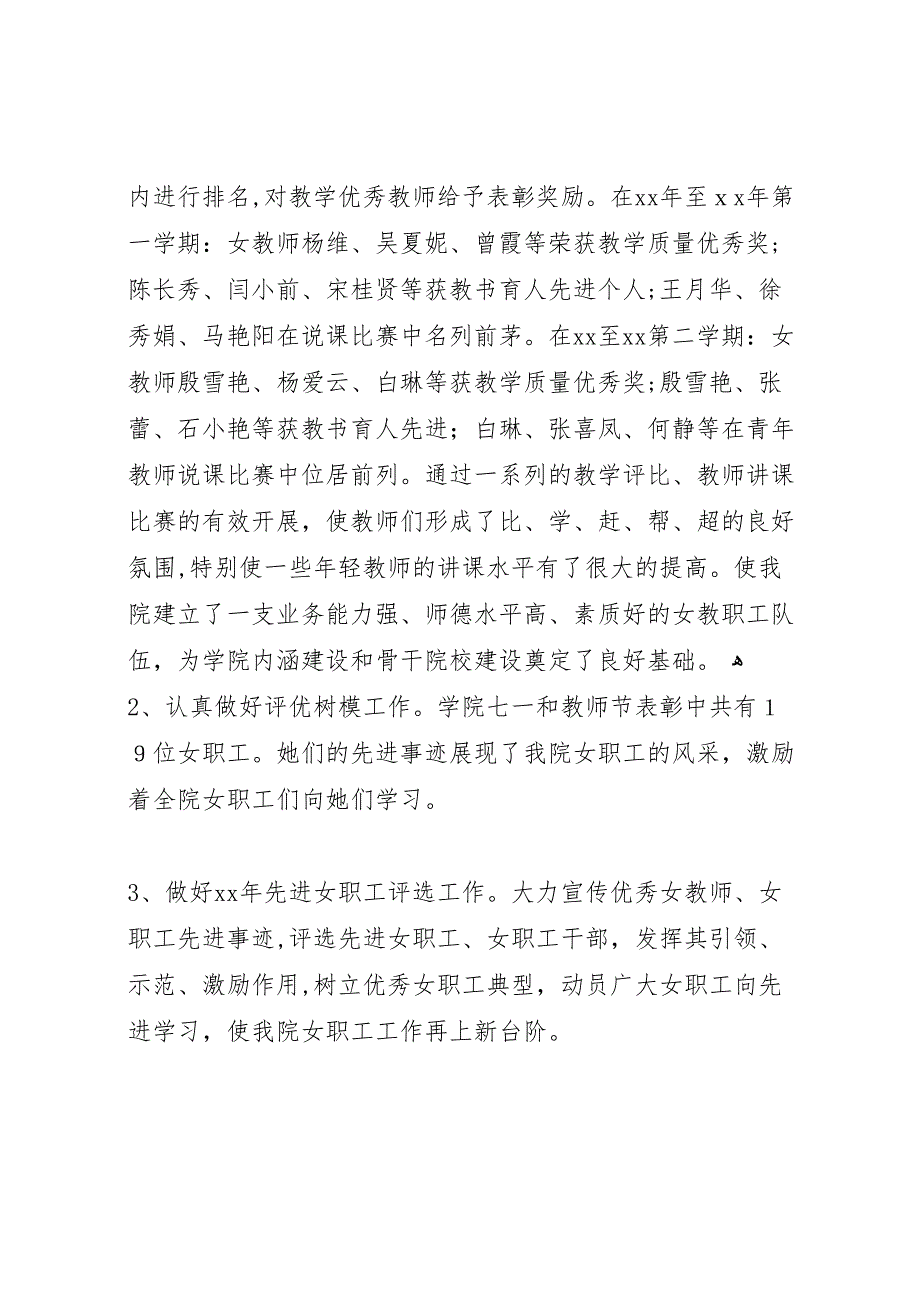 内进行排名,对教学优秀教师给予表彰奖励。在xx年至ｘx年第
一学期：女教师杨维、吴夏妮、曾霞等荣获教学质量优秀奖;
陈长秀、闫小前、宋桂贤等获教书育人先进个人;王月华、徐
秀娟、马艳阳在说课比赛中名列前茅。在xx至xx第二学期：女
教师殷雪艳、杨爱云、白琳等获教学质量优秀奖;殷雪艳、张
蕾、石小艳等获教书育人先进；白琳、张喜凤、何静等在青年
教师说课比赛中位居前列。通过一系列的教学评比、教师讲课
比赛的有效开展，使教师们形成了比、学、赶、帮、超的良好
氛围,特别使一些年轻教师的讲课水平有了很大的提高。使我
院建立了一支业务能力强、师德水平高、素质好的女教职工队
伍，为学院内涵建设和骨干院校建设奠定了良好基础。 ﻫ
2、认真做好评优树模工作。学院七一和教师节表彰中共有１
９位女职工。她们的先进事迹展现了我院女职工的风采，激励
着全院女职工们向她们学习。
3、做好xx年先进女职工评选工作。大力宣传优秀女教师、女
职工先进事迹,评选先进女职工、女职工干部，发挥其引领、
示范、激励作用,树立优秀女职工典型，动员广大女职工向先
进学习，使我院女职工工作再上新台阶。